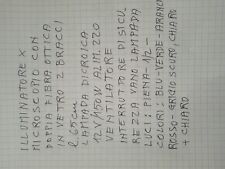 ILLUMINATORE X
MICROSCOPIO CON
DOPPIA FIBRA OTTICA
IN VETRO 2 BRACCI
l 65cm
LAMPADA DICROICA
15V/150W ALIM. 220
VENTILATORE
INTERRUTTORE DI SICU
REZZA VANO LAMPADA
LUCI: PIENA - 1/2 -
COLORI: BLU-VERDE-ARANCIO
ROSSO-GRIGIO SCURO, CHIARO
+ CHIARO